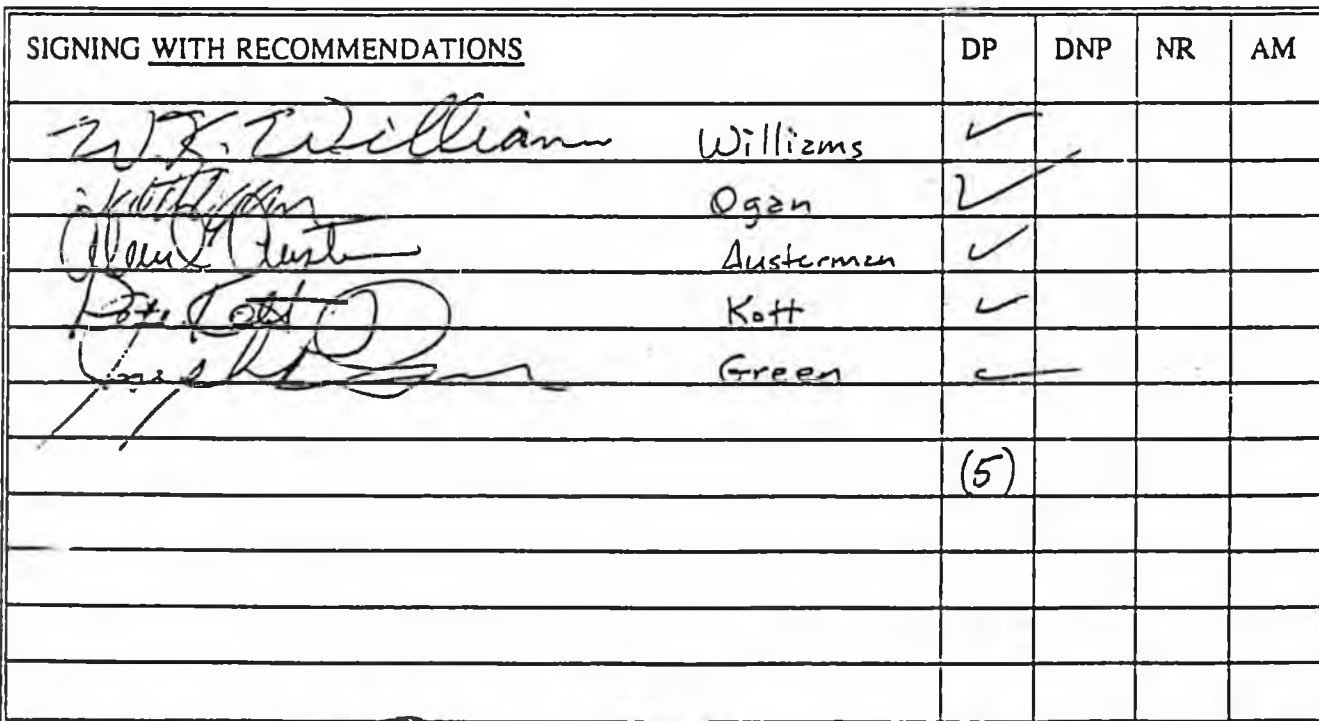 SIGNING WITH RECOMMENDATIONS DP DNP NR AM
W.K. William Williams ✓
Ogan ✓
Austerman ✓
Kott Kott ✓
Green ✓
(5)